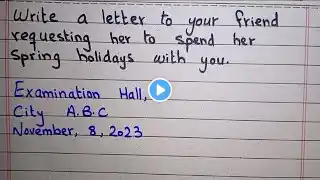 Write a letter to your friend
requesting her to spend her
Spring holidays with you.
Examination Hall,
City A.B.C
November, 8, 2023